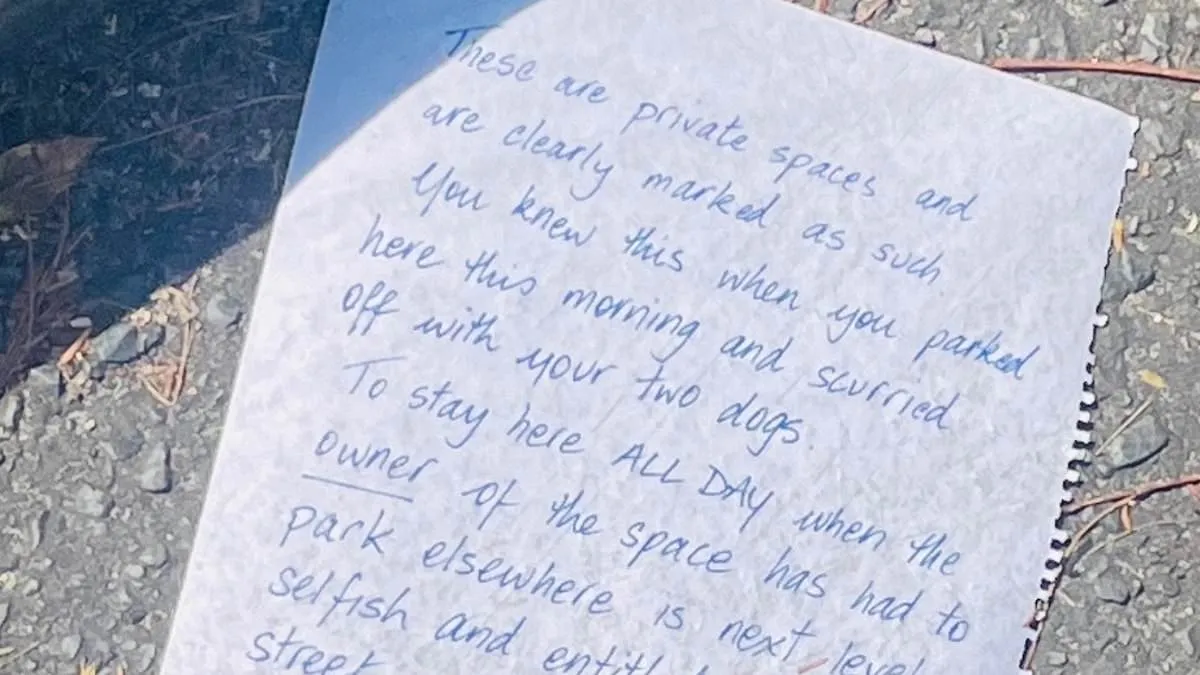 These are private spaces and
are clearly marked as such.
You knew this when you parked
here this morning and scurried
off with your two dogs.
To stay here ALL DAY when the
owner of the space has had to
park elsewhere is next level
selfish and
street